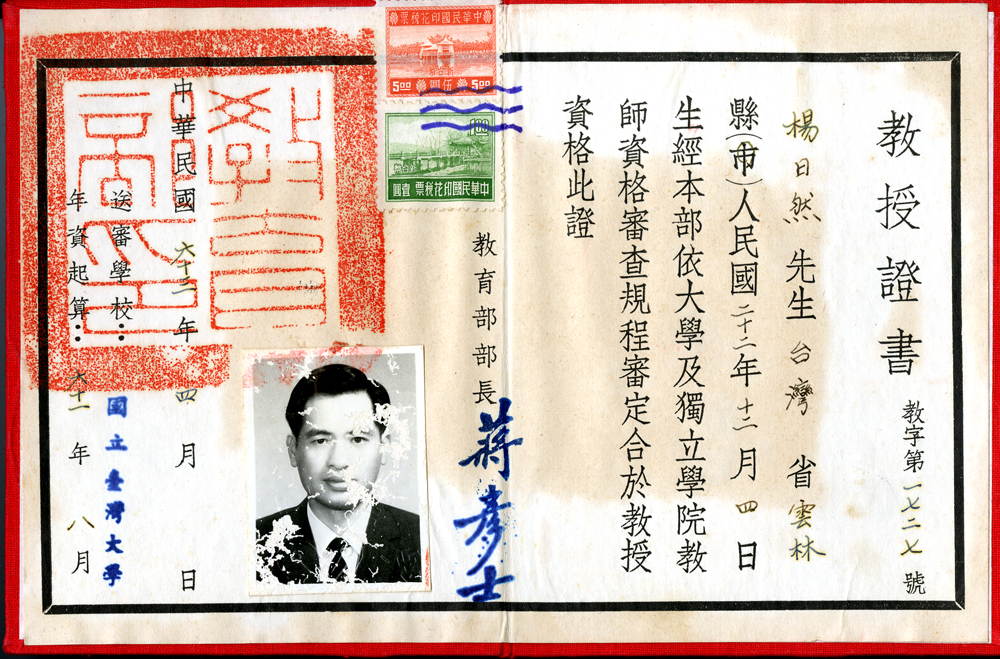 教授證書
教字第一七二七號
楊日然先生台灣省雲林
縣(市)人民國二十二年十二月四日
生經本部依大學及獨立學院教
師資格審查規程審定合於教授
資格此證
教育部部長蔣彥士
中華民國印花稅票
5.00 伍圓 5.00
1.00
中華民國印花稅票 壹圓
教育部印
中華民國六十二年四月日
送審學校:國立臺灣大學
年資起算:六十一年八月